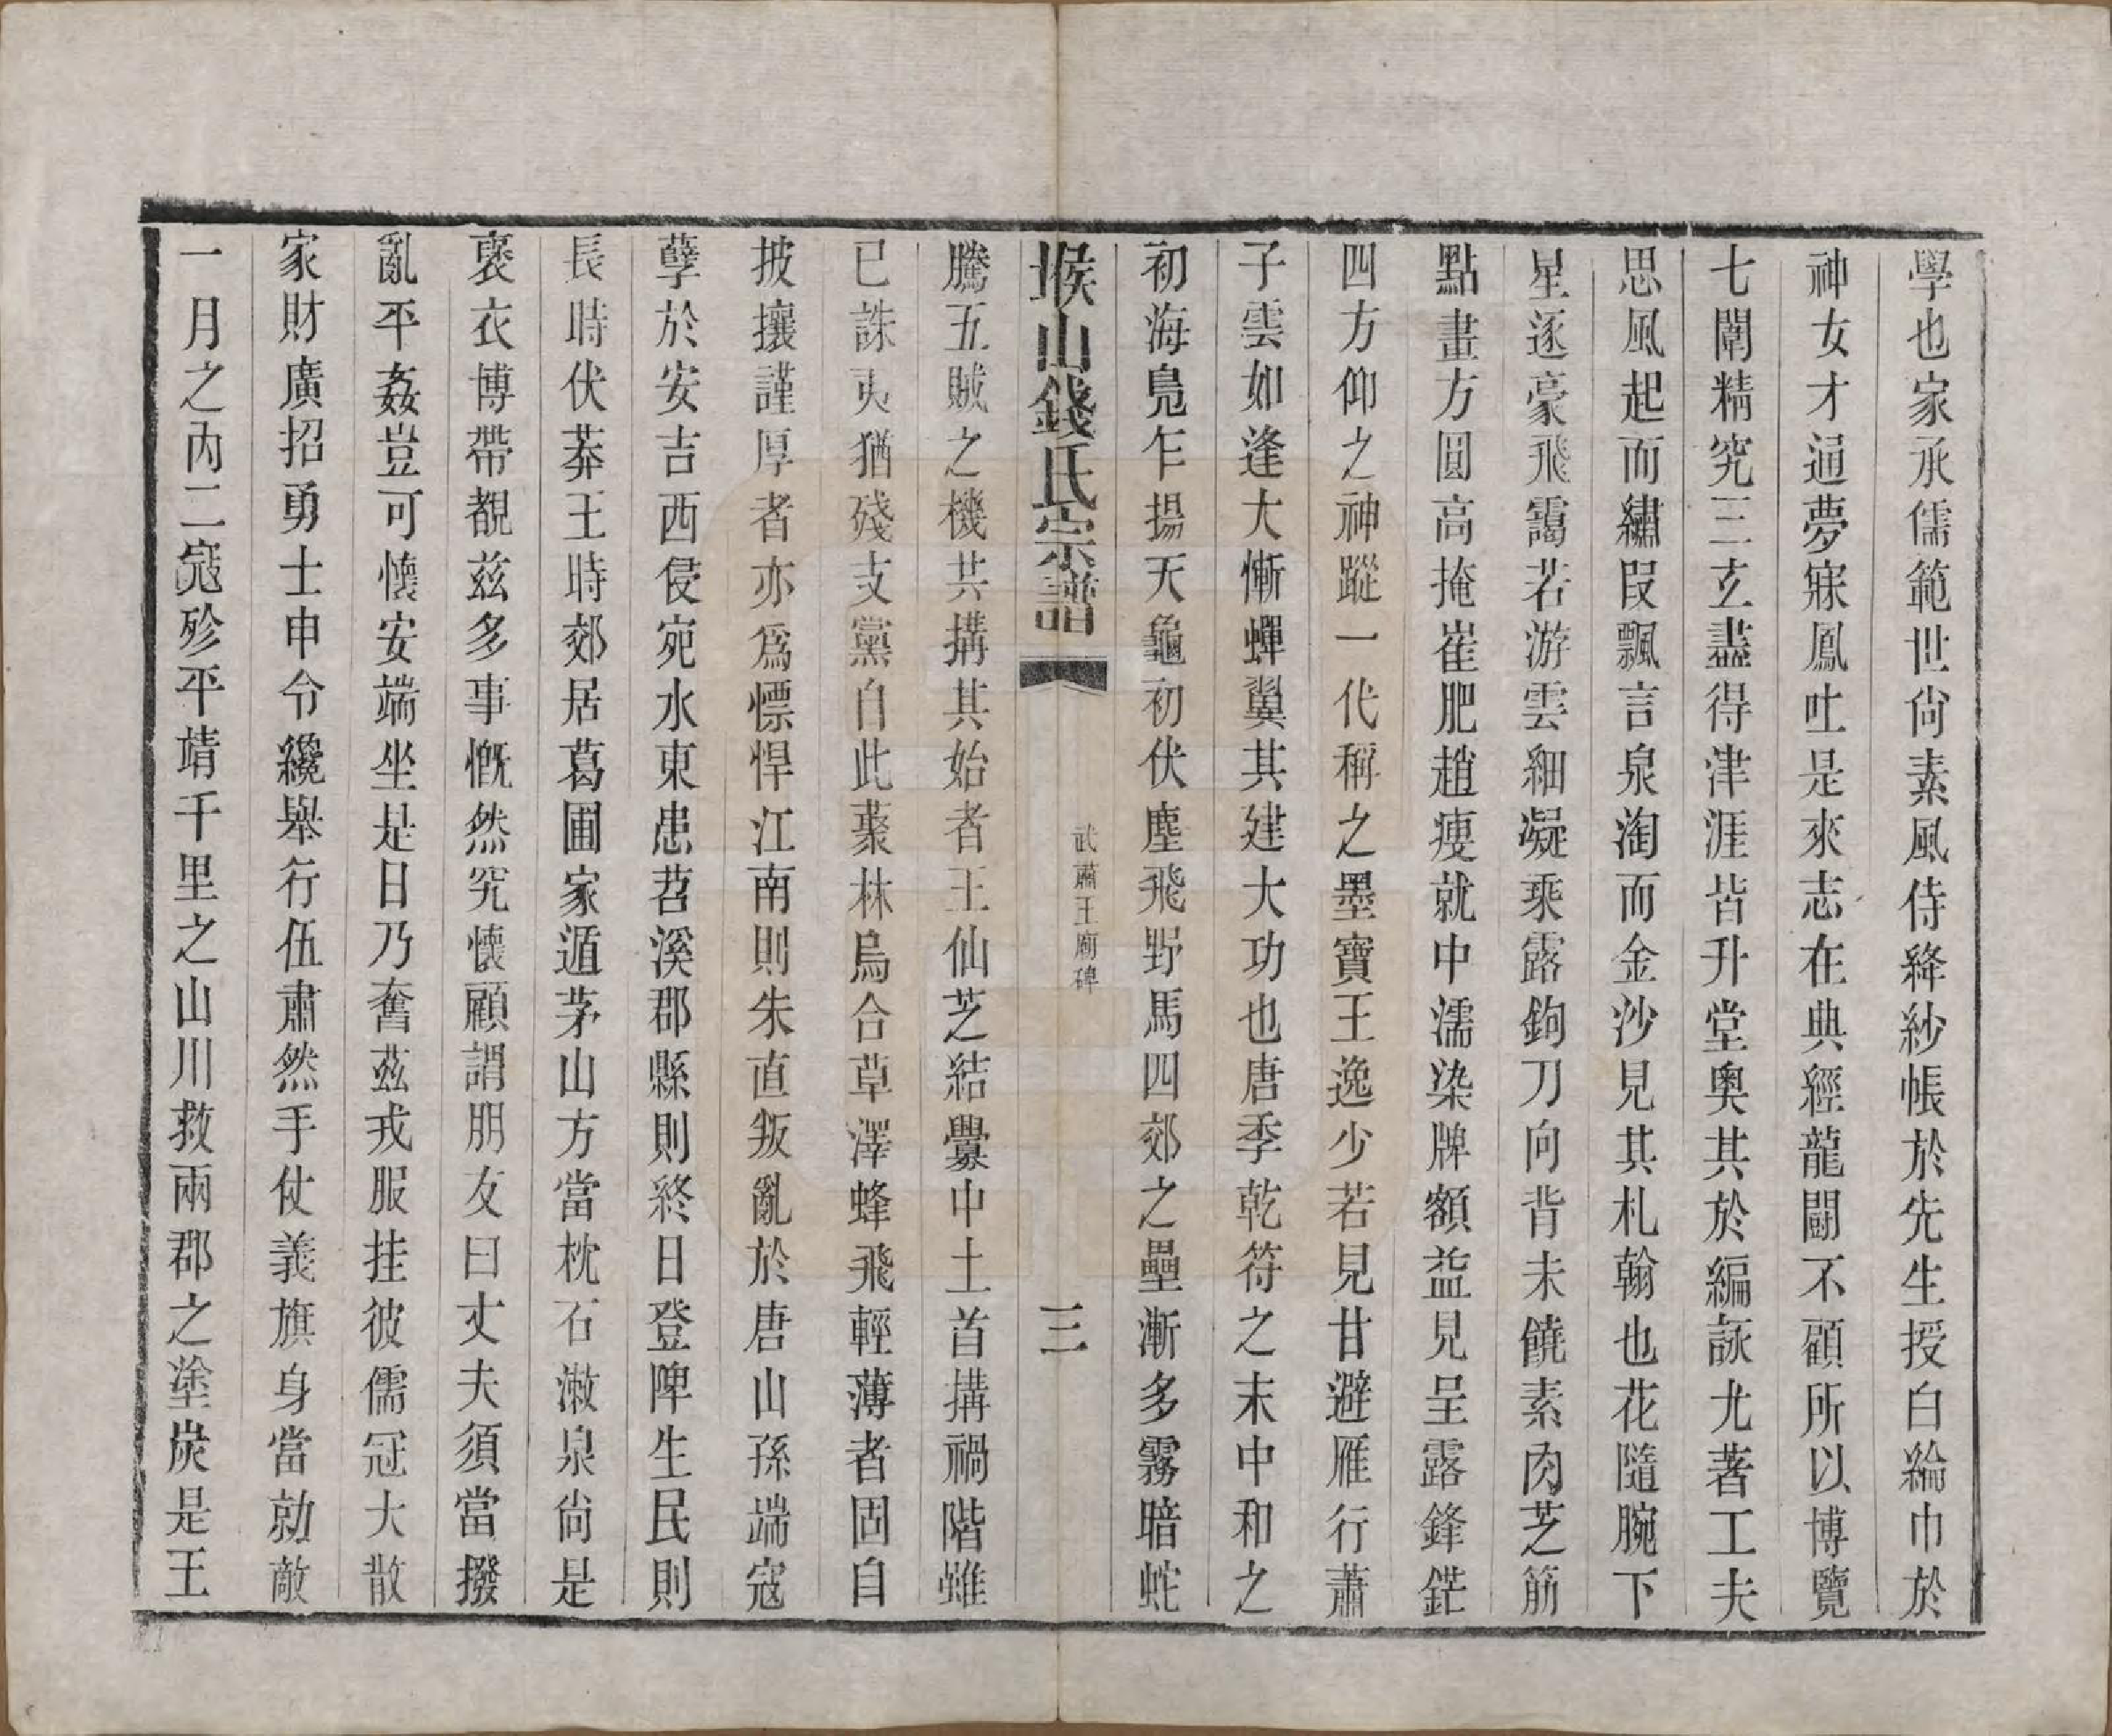 學也家承儒範世尙素風侍絳紗帳於先生授白綸巾於
神女才通夢寐鳳吐是來志在典經龍鬭不顧所以博覽
七闈精究三玄盡得津涯皆升堂奧其於編詠尤著工夫
思風起而繡段飄言泉淘而金沙見其札翰也花隨腕下
星逐豪飛靄若游雲細凝乘露鉤刀向背未饒素肉芝筋
點畫方圓高掩崔肥趙瘦就中濡染牌額益見呈露鋒鋩
四方仰之神蹤一代稱之墨寶王逸少若見甘避雁行蕭
子雲如逢大慚蟬翼其建大功也唐季乾符之末中和之
初海鳧乍揚天龜初伏塵飛野馬四郊之壘漸多霧暗蛇
堠山錢氏宗譜
武肅王廟碑
三
騰五賊之機共搆其始者王仙芝結釁中土首搆禍階雖
已誅夷猶殘支黨自此聚林烏合草澤蜂飛輕薄者固自
披攘謹厚者亦爲慓悍江南則朱直叛亂於唐山孫端寇
孽於安吉西侵宛水東患苕溪郡縣則終日登陴生民則
長時伏莽王時郊居葛圃家遁茅山方當枕石漱泉尙是
裦衣博帶覩茲多事慨然究懷顧謂朋友曰丈夫須當撥
亂平姦豈可懷安端坐是日乃奮茲戎服挂彼儒冠大散
家財廣招勇士申令纔舉行伍肅然手仗義旗身當勍敵
一月之內二寇殄平靖千里之山川救兩郡之塗炭是王